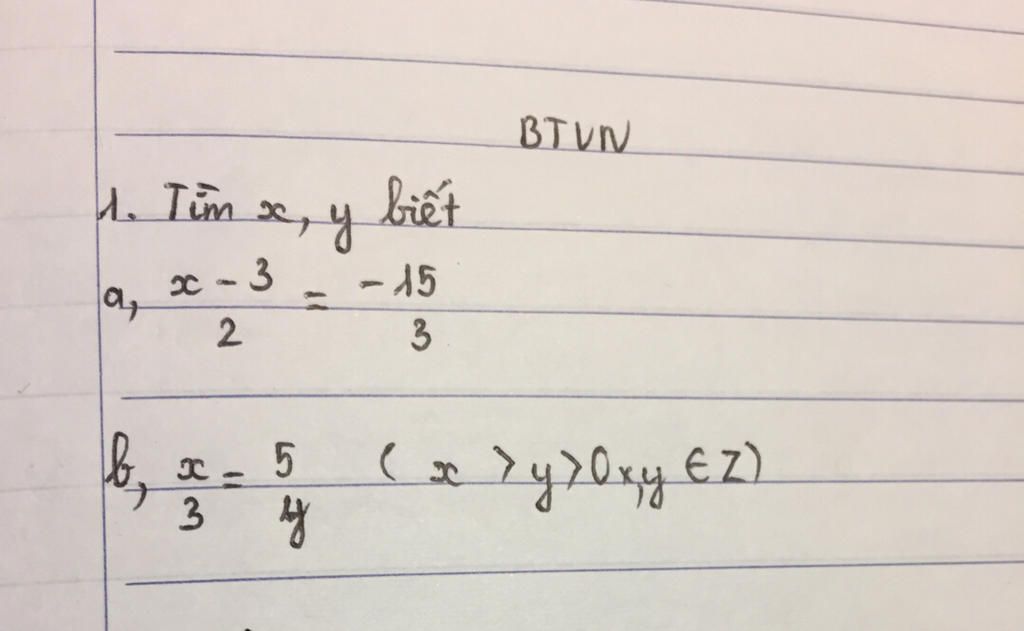 BTVN
1. Tìm x, y biết
a, x - 3 / 2 = -15 / 3
b, x / 3 = 5 / y ( x > y > 0 x, y ∈ Z)